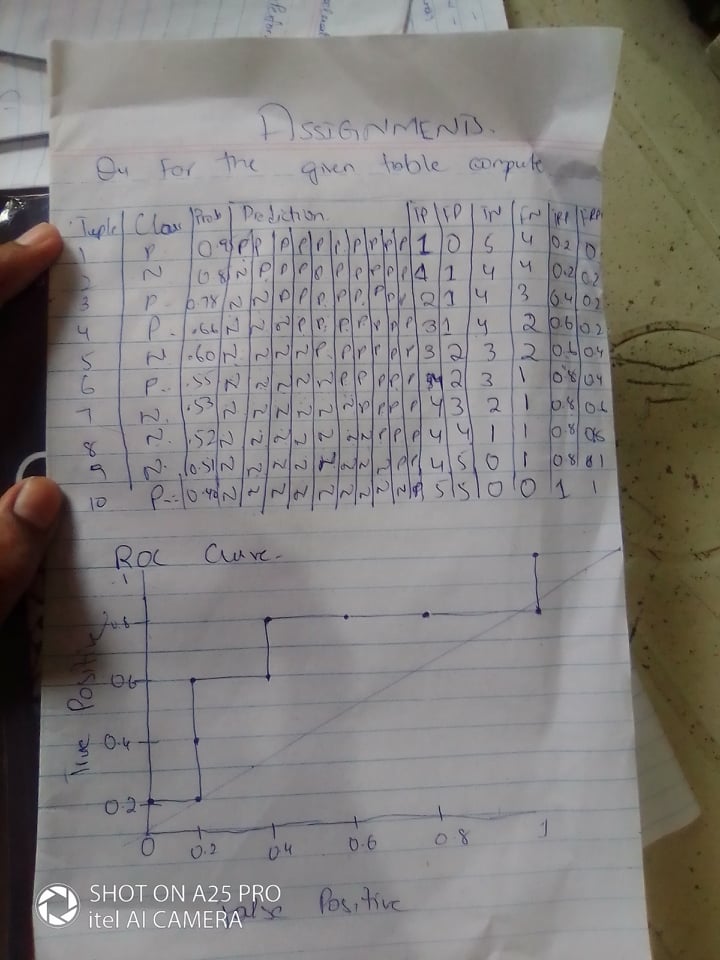 ASSIGNMENTS.
Qu For the given table compute
Tuple Class Prob Prediction TP FP TN FN TPR FPR
1 P 0.9 P P P P P P P P P P 1 0 5 4 0.2 0.
2 N 0.8 N P P P P P P P P P 1 1 4 4 0.2 0.2
3 P 0.78 N N P P P P P P P P 2 1 4 3 0.4 0.2
4 P .66 N N N P P P P P P P 3 1 4 2 0.6 0.2
5 N .60 N N N N P P P P P P 3 2 3 2 0.6 0.4
6 P .55 N N N N N P P P P P 4 2 3 1 0.8 0.4
7 N .53 N N N N N N P P P P 4 3 2 1 0.8
8 N .52 N N N N N N N P P P 4 4 1 1 0.8
9 N 0.51 N N N N N N N N P P 4 5 0 1 0.8
10 P N N N N N N N N N P 5 5 0 0 1 1
ROC Curve.
1
0.8
0.6
0.4
0.2
True Positive
0 0.2 0.4 0.6 0.8 1
Positive
SHOT ON A25 PRO
itel AI CAMERA